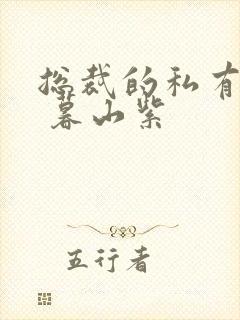 总裁的私有
暮山紫
五行者